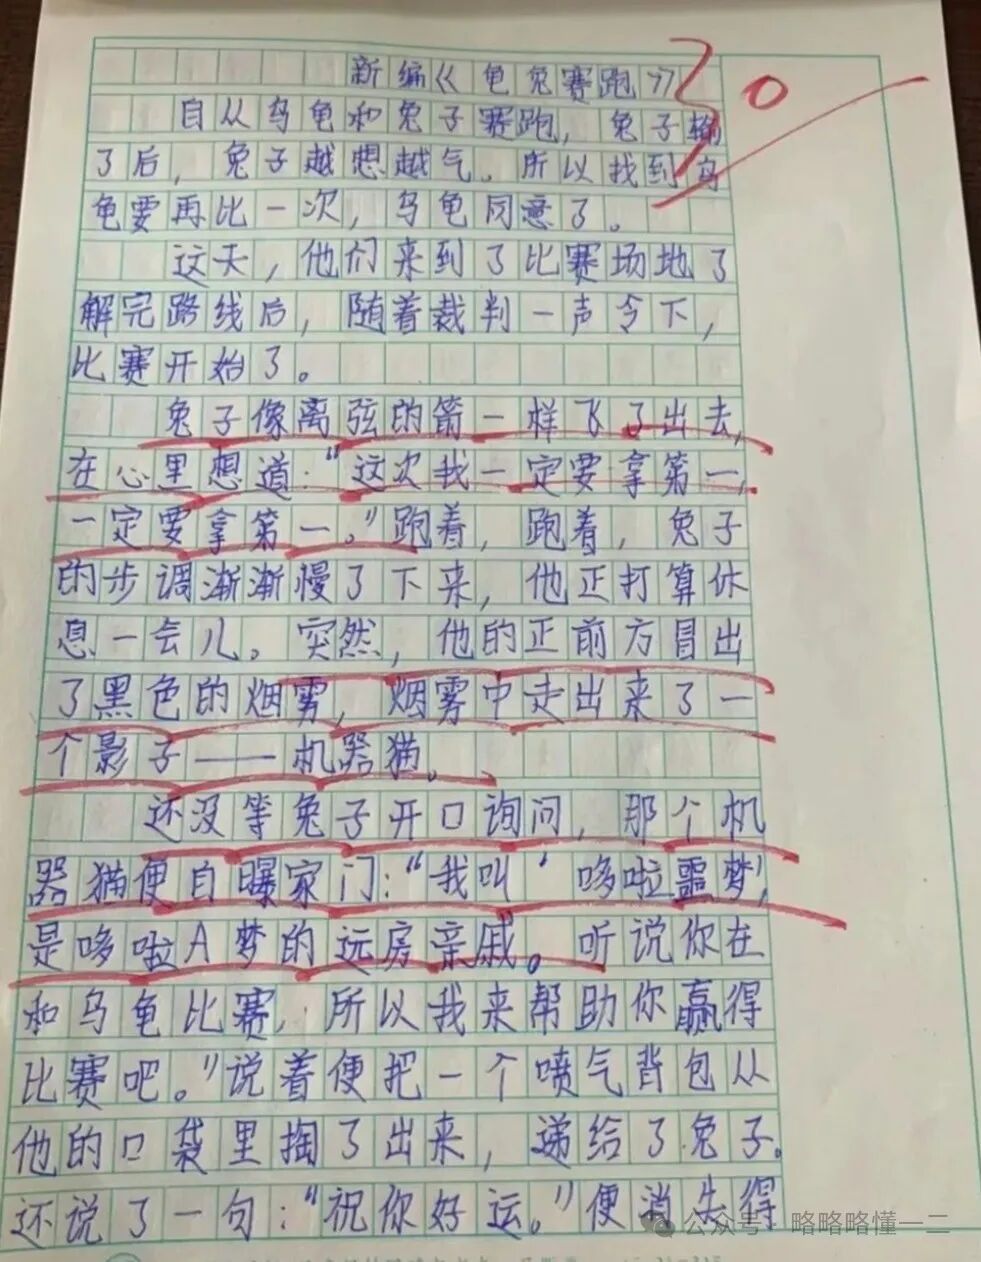 新编《龟兔赛跑》
0
自从乌龟和兔子赛跑，兔子输
了后，兔子越想越气。所以找到乌
龟要再比一次，乌龟同意了。
这天，他们来到了比赛场地了
解完路线后，随着裁判一声令下，
比赛开始了。
兔子像离弦的箭一样飞了出去，
在心里想道：“这次我一定要拿第一，
一定要拿第一。”跑着，跑着，兔子
的步调渐渐慢了下来，他正打算休
息一会儿。突然，他的正前方冒出
了黑色的烟雾，烟雾中走出来了一
个影子——机器猫。
还没等兔子开口询问，那个机
器猫便自曝家门：“我叫‘哆啦噩梦’，
是哆啦A梦的远房亲戚。听说你在
和乌龟比赛，所以我来帮助你赢得
比赛吧。”说着便把一个喷气背包从
他的口袋里掏了出来，递给了兔子。
还说了一句：“祝你好运。”便消失得
公众号·略略略懂一二